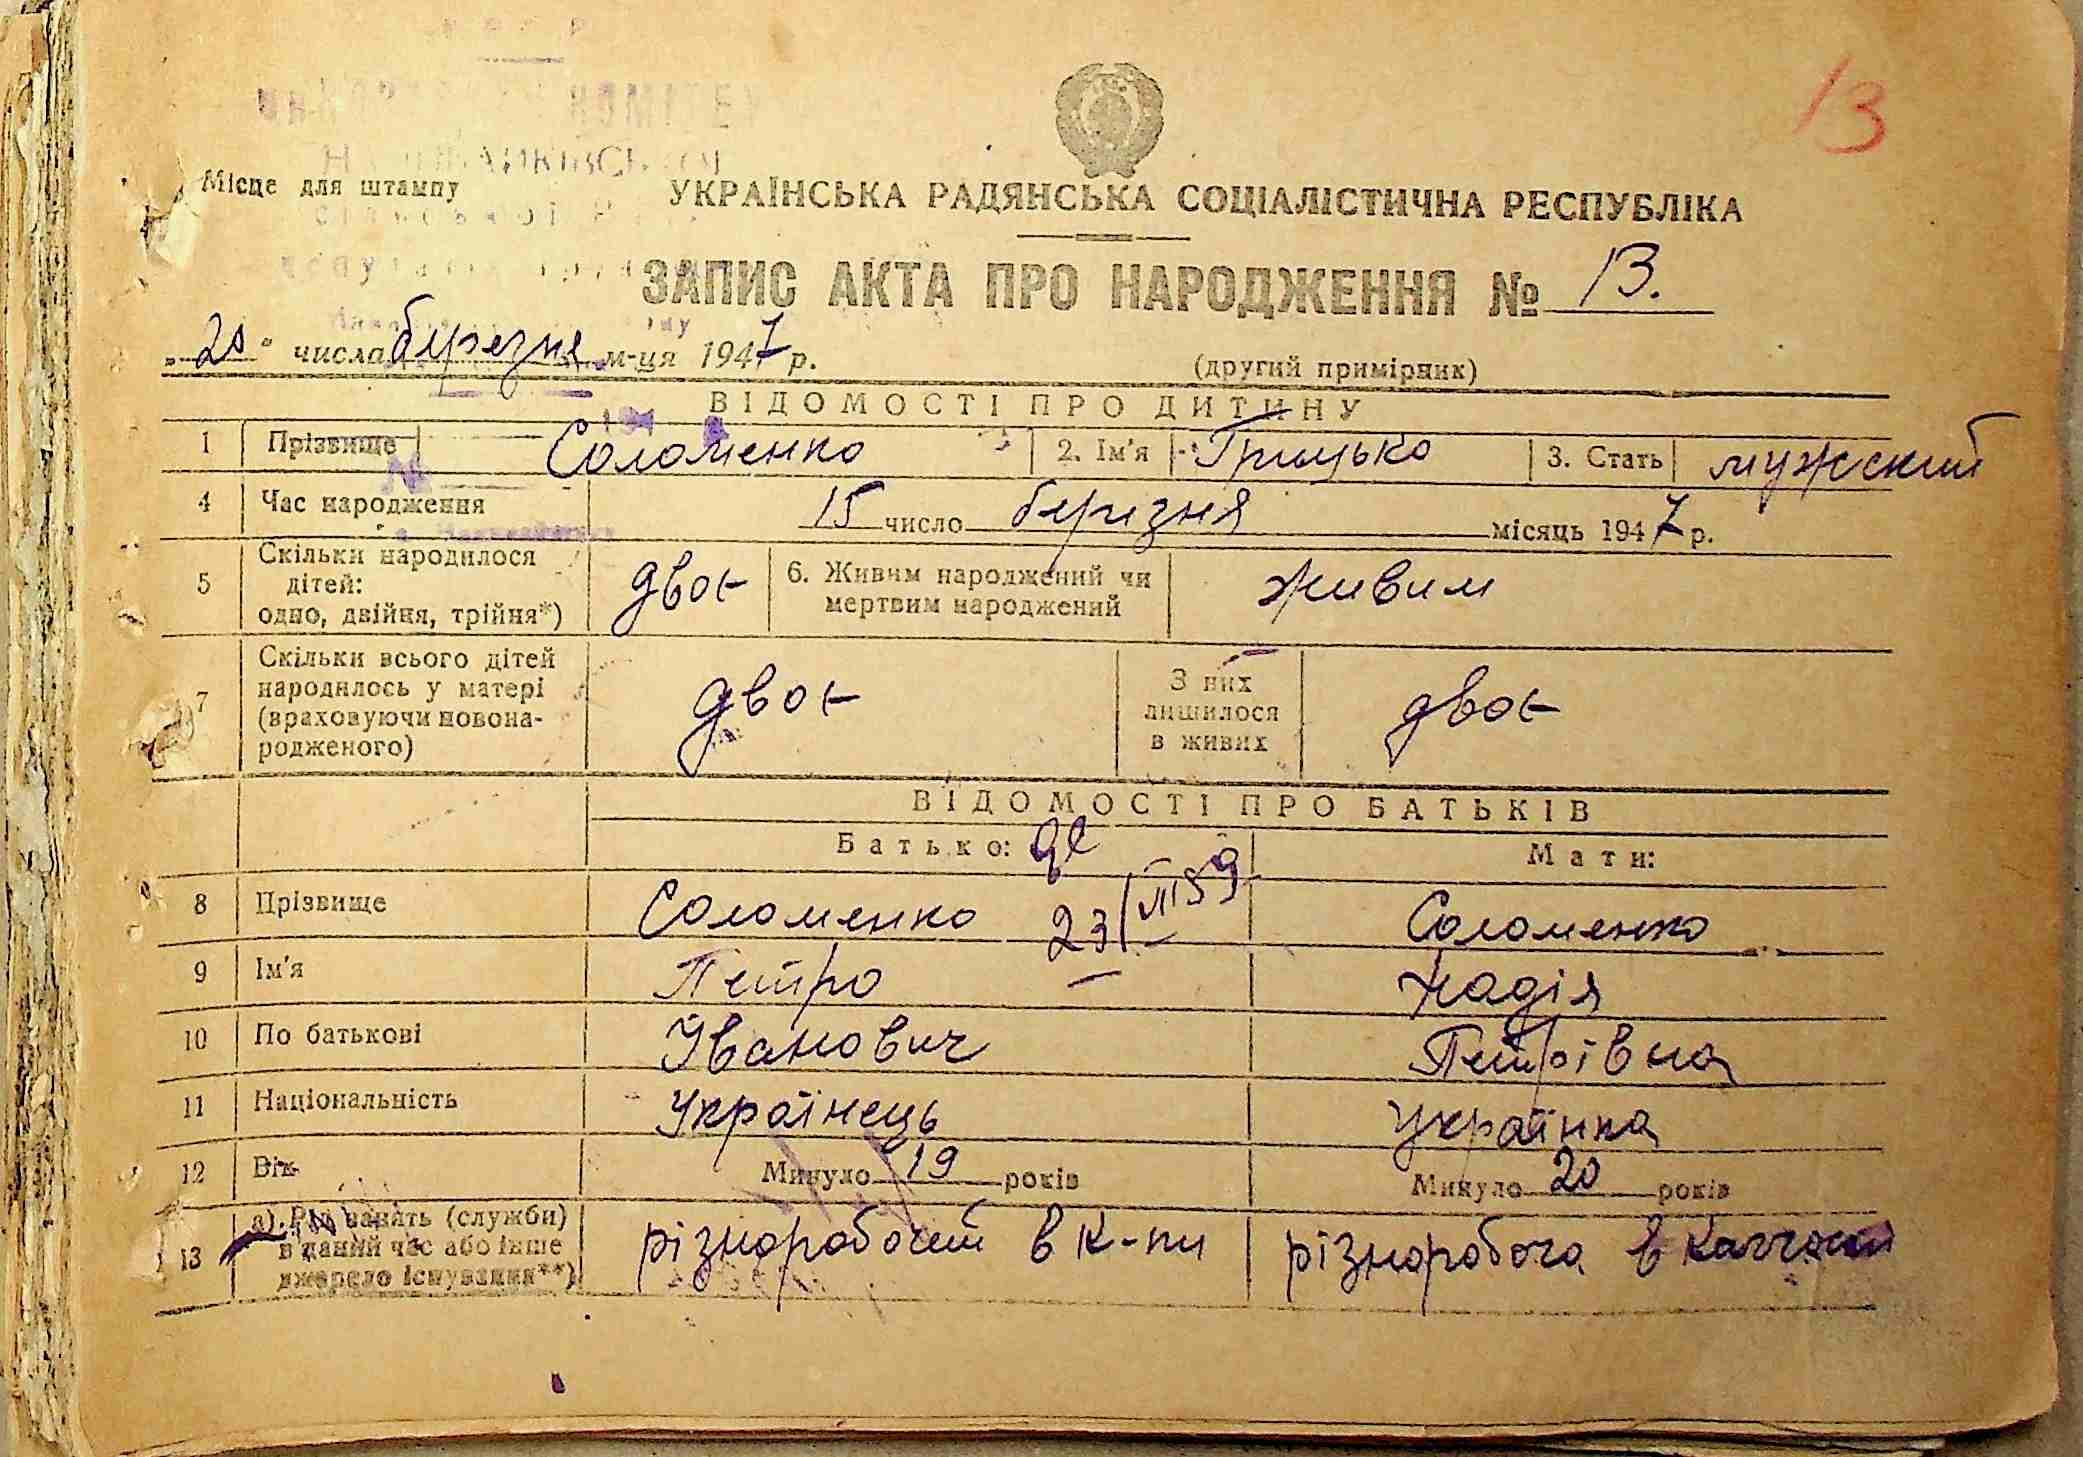 13
Місце для штампу
УКРАЇНСЬКА РАДЯНСЬКА СОЦІАЛІСТИЧНА РЕСПУБЛІКА
ЗАПИС АКТА ПРО НАРОДЖЕННЯ № 13.
„20" числа березня м-ця 1947 р.
(другий примірник)
ВІДОМОСТІ ПРО ДИТИНУ
1 Прізвище Соломенко 2. Ім'я Грицько 3. Стать мужский
4 Час народження 15 число березня місяць 1947 р.
5 Скільки народилося дітей: одно, двійня, трійня*) двоє 6. Живим народжений чи мертвим народжений живим
7 Скільки всього дітей народилось у матері (враховуючи новонародженого) двоє З них лишилося в живих двоє
ВІДОМОСТІ ПРО БАТЬКІВ
Батько: Мати:
8 Прізвище Соломенко Соломенко
9 Ім'я Петро Надія
10 По батькові Іванович Петрівна
11 Національність Українець Українка
12 Вік Минуло 19 років Минуло 20 років
13 а) Рід занять (служби) в даний час або інше джерело існування**) різноробочий в к-пи різноробоча в